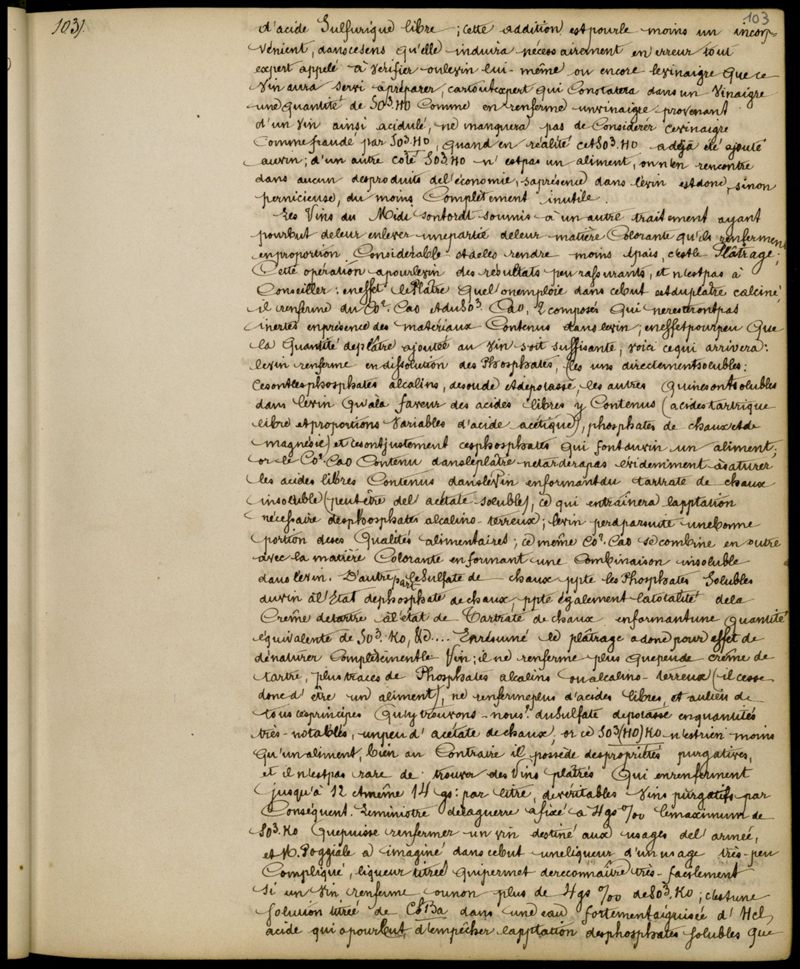 103
103/
d'acide Sulfurique libre ; cette addition est pour le moins un incon-
vénient, dans ce sens qu'elle induira nécessairement en erreur tout
expert appelé à vérifier ou le vin lui-même ou encore le vinaigre que ce
vin aura servi à préparer, car tout expert qui constatera dans un vinaigre
une quantité de SO³.HO comme en renferme un vinaigre provenant
d'un vin ainsi acidulé, ne manquera pas de considérer ce vinaigre
comme fraudé par SO³.HO, quand en réalité cet SO³.HO a déjà été ajouté
au vin ; d'un autre côté SO³.HO n'est pas un aliment, on n'en rencontre
dans aucun des produits de l'économie, sa présence dans le vin est donc, sinon
pernicieuse, du moins complètement inutile.
Les Vins du Midi sont ordt soumis à un autre traitement ayant
pour but de leur enlever une partie de leur matière colorante qu'ils renferment
en proportion considérable et de les rendre moins épais, c'est le Plâtrage ;
Cette opération a pour le vin des résultats peu rassurants, et n'est pas à
conseiller : en effet le Plâtre que l'on emploie dans ce but est du plâtre calciné,
il renferme du CO².CaO et du SO³.CaO, 2 composés qui ne resteront pas
inertes en présence des matériaux contenus dans le vin ; en effet pour peu que
la quantité de plâtre ajoutée au vin soit suffisante, voici ce qui arrivera :
le vin renferme en dissolution des Phosphates, les uns directement solubles :
ce sont les phosphates alcalins, de soude et de potasse, les autres qui ne sont solubles
dans le vin qu'à la faveur des acides libres y contenus (acide tartrique
libre et proportions variables d'acide acétique), phosphates de chaux et de
magnésie) et ce sont justement ces phosphates qui font du vin un aliment ;
or le CO².CaO contenu dans le plâtre ne tardera pas évidemment à saturer
les acides libres contenus dans le vin en formant du tartrate de chaux
insoluble (peut être de l'acétate soluble), ce qui entraînera la pptation
nécessaire des phosphates alcalino-terreux ; le vin perd par suite une bonne
portion de ses qualités alimentaires ; ce même CO².CaO se combine en outre
avec la matière colorante en formant une combinaison insoluble
dans le vin. D'autre part le Sulfate de chaux ppte les Phosphates solubles
du vin à l'état de phosphate de chaux, ppte également la totalité de la
Crème de tartre à l'état de Tartrate de chaux en formant une quantité
équivalente de SO³.KO, &c.... En résumé le plâtrage a donc pour effet de
dénaturer complètement le Vin ; il ne renferme plus que peu de crème de
tartre, plus traces de Phosphates alcalins ou alcalino-terreux (il cesse
donc d'être un aliment), ne renferme plus d'acides libres, et au lieu de
tous ces principes qu'y trouvons-nous ? du Sulfate de potasse en quantités
très-notables, un peu d'acétate de chaux, or ce SO³(HO)KO n'est rien moins
qu'un aliment, bien au contraire il possède des propriétés purgatives,
et il n'est pas rare de trouver des Vins plâtrés qui en renferment
jusqu'à 12 et même 14 gs. par litre, de véritables Vins purgatifs par
conséquent. Le ministre de la guerre a fixé à 4 gs ‰ le maximum de
SO³.KO que puisse renfermer un vin destiné aux usages de l'armée,
et M. Poggiale a imaginé dans ce but une liqueur d'un usage très-peu
compliqué, liqueur titrée qui permet de reconnaître très-facilement
si un Vin renferme ou non plus de 4 gs ‰ de SO³.KO ; c'est une
solution titrée de ClBa dans une eau fortement aiguisée d'HCl,
acide qui a pour but d'empêcher la pptation des phosphates solubles que